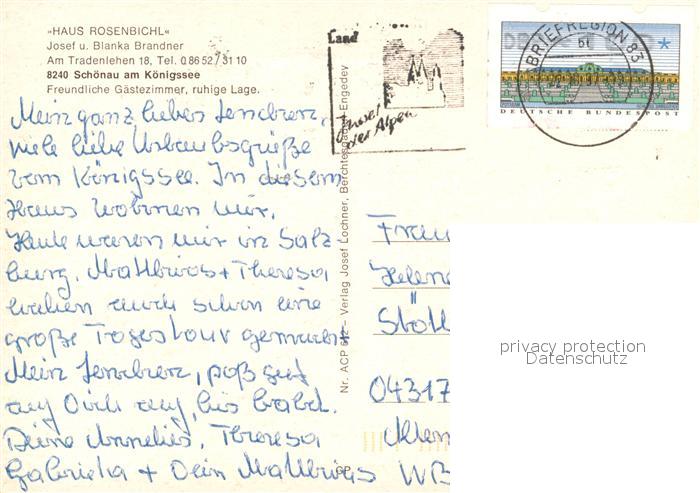 »HAUS ROSENBICHL«
Josef u. Blanka Brandner
Am Tradenlehen 18, Tel. 0 86 52 / 31 10
8240 Schönau am Königssee
Freundliche Gästezimmer, ruhige Lage.
Mein ganz liebes
viele liebe Urlaubsgrüße
vom Königssee. In diesem
Haus wohnen wir.
Heute waren wir in Salz-
burg. Matthias + Theresa
haben auch schon eine
große Tagestour gemacht.
Mein paß gut
auf Dich auf, bis bald.
Deine Annelies, Theresa
Gabriela + Dein Matthias
Nr. ACP 612 – Verlag Josef Lochner, Berchtesgaden-Engedey
GP
Land
Inseln
der Alpen
BRIEFREGION 83
bt
DEUTSCHE BUNDESPOST
Frau
Helen
Stött
04317
Klem
WB
privacy protection
Datenschutz